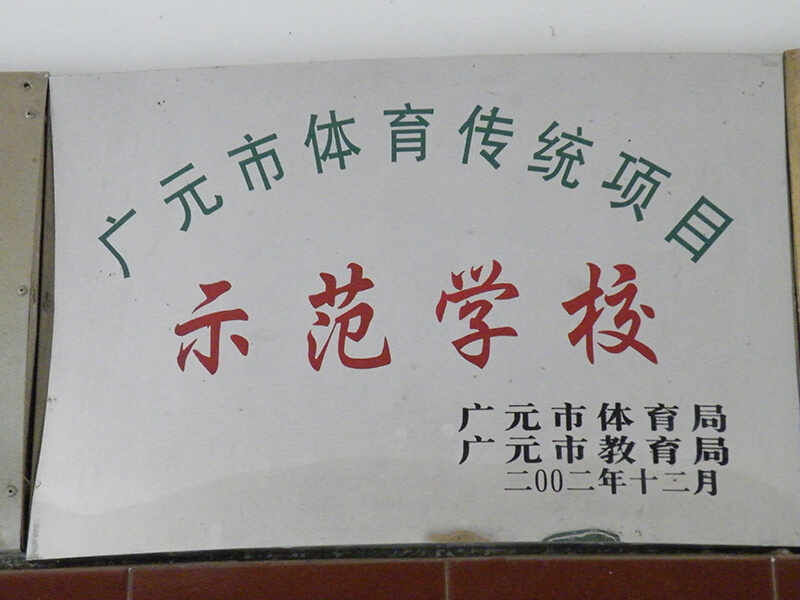 广元市体育传统项目
示范学校
广元市体育局
广元市教育局
二00二年十二月